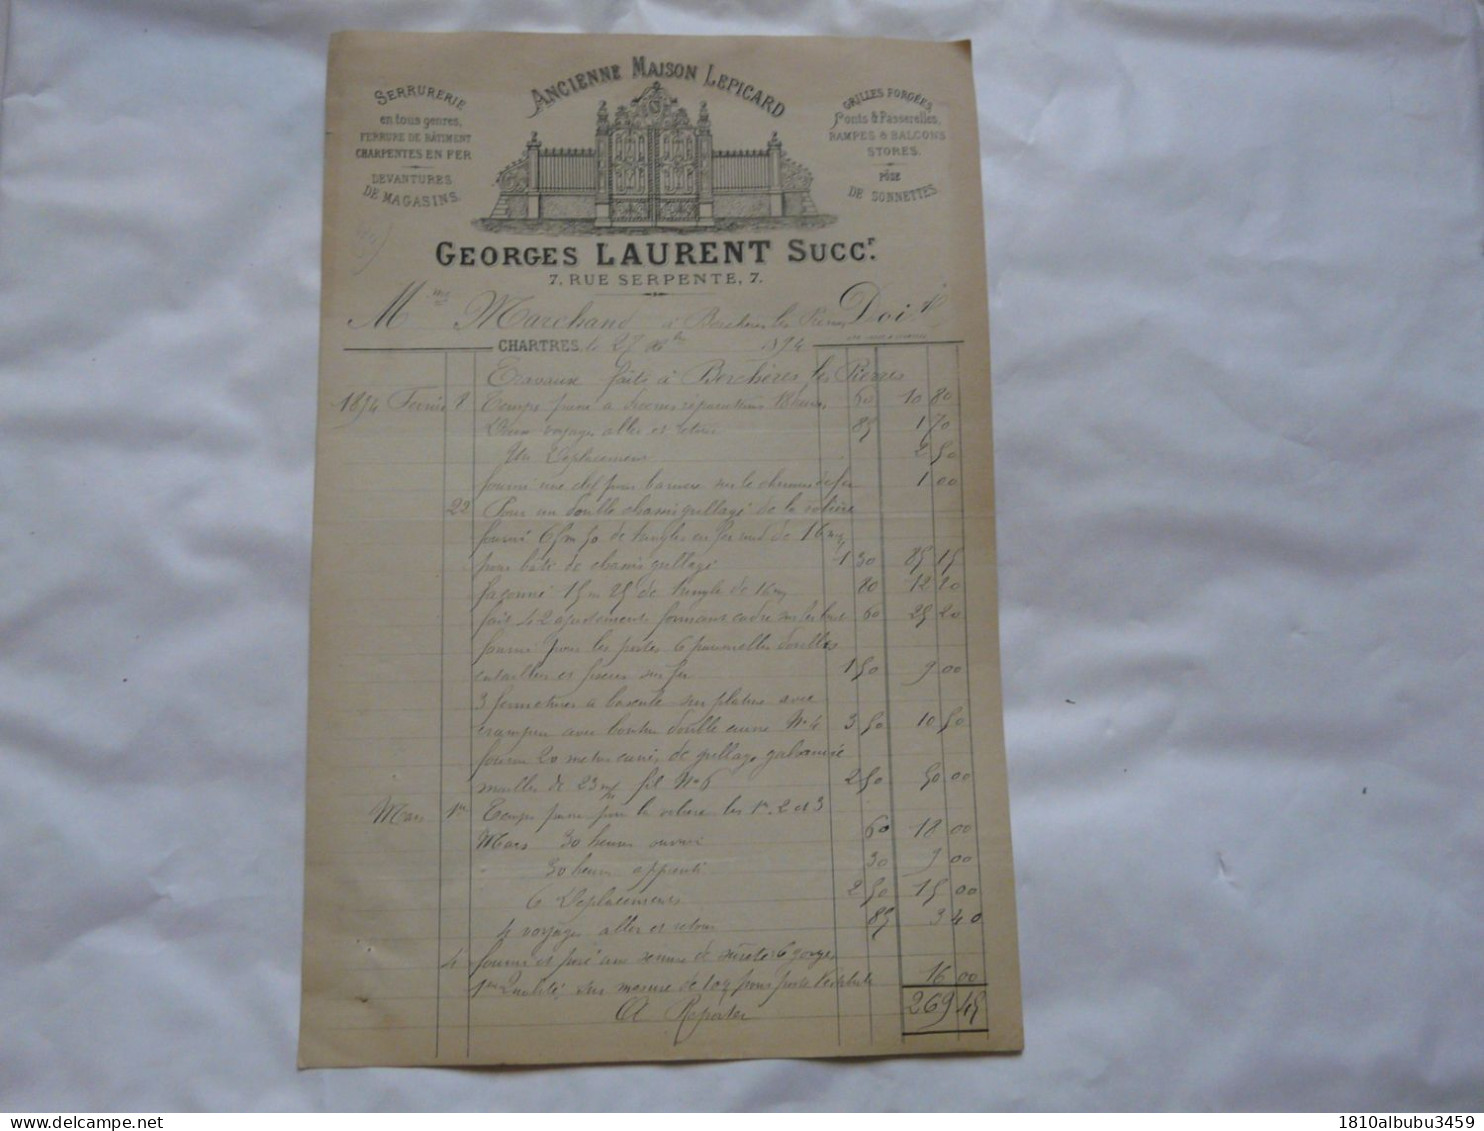 ANCIENNE MAISON LEPICARD
SERRURERIE
en tous genres,
FERRURE DE BÂTIMENT
CHARPENTES EN FER
DEVANTURES
DE MAGASINS.
GRILLES FORGÉES,
Ponts & Passerelles,
RAMPES & BALCONS
STORES.
POSE
DE SONNETTES.
GEORGES LAURENT SUCCr.
7, RUE SERPENTE, 7.
Mme Marchand à Berchères les Pierres Doit
CHARTRES, le 27 Xbre 1894
Travaux faits à Berchères les Pierres
1894 Février 8 Temps passé à diverses réparations 18 heures 60 10 80
Deux voyages aller et retour 85 1 70
Un Déplacement 2 50
fourni une clef pour barrière sur le chemin de fer 1 00
22 Pour un double chassis grillagé de la volière
fourni 65m 50 de tringles en fer rond de 16 m/m
pour bâti de chassis grillagé 1 30 85 15
façonné 15m 25 de tringle de 16 m/m 80 12 20
fait 42 ajustements formant cadre sur les bouts 60 25 20
fourni pour les portes 6 paumelles doubles
entaillées et fixées sur fer 1 50 9 00
3 fermetures à bascule sur platine avec
crampon avec bouton double cuivre No 4 3 50 10 50
fourni 20 mètres carrés de grillage galvanisé
mailles de 23 m/m fil No 6 2 50 50 00
Mars 1er Temps passé pour la volière les 1er, 2 et 3
Mars 30 heures ouvrier 60 18 00
30 heures apprenti 30 9 00
6 Déplacements 2 50 15 00
4 voyages aller et retour 85 3 40
4 fourni et posé une serrure de sûreté 6 gorges
1ère Qualité, sur mesure de long pour porte Vestibule 16 00
A Reporter 269 45
1810albubu3459
delcampe.net